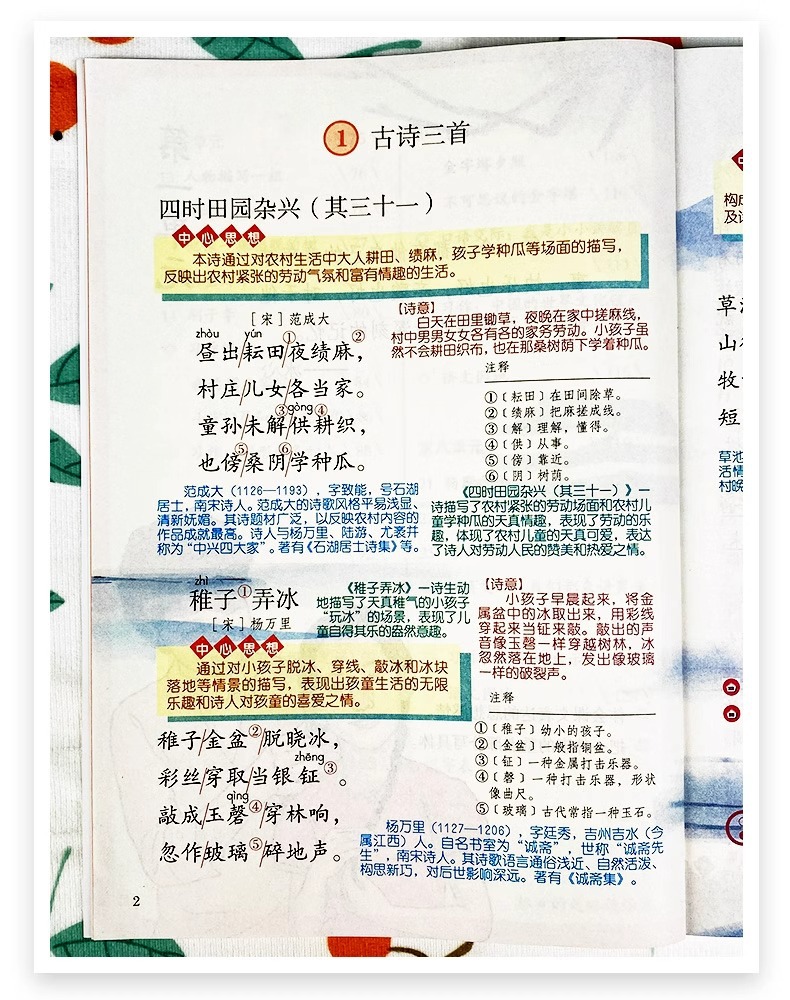 1 古诗三首
四时田园杂兴（其三十一）
中心思想
本诗通过对农村生活中大人耕田、绩麻，孩子学种瓜等场面的描写，
反映出农村紧张的劳动气氛和富有情趣的生活。
［宋］范成大
zhòu yún
昼出/耘田①/夜绩麻②，
村庄/儿女/各当家。
gòng
童孙/未解③/供④耕织，
也傍⑤/桑阴⑥/学种瓜。
【诗意】
白天在田里锄草，夜晚在家中搓麻线，
村中男男女女各有各的家务劳动。小孩子虽
然不会耕田织布，也在那桑树阴下学着种瓜。
注释
①〔耘田〕在田间除草。
②〔绩麻〕把麻搓成线。
③〔解〕理解，懂得。
④〔供〕从事。
⑤〔傍〕靠近。
⑥〔阴〕树荫。
范成大（1126—1193），字致能，号石湖
居士，南宋诗人。范成大的诗歌风格平易浅显、
清新妩媚。其诗题材广泛，以反映农村内容的
作品成就最高。诗人与杨万里、陆游、尤袤并
称为“中兴四大家”。著有《石湖居士诗集》等。
《四时田园杂兴（其三十一）》一
诗描写了农村紧张的劳动场面和农村儿
童学种瓜的天真情趣，表现了劳动的乐
趣，体现了农村儿童的天真可爱，表达
了诗人对劳动人民的赞美和热爱之情。
zhì
稚子①弄冰
［宋］杨万里
《稚子弄冰》一诗生动
地描写了天真稚气的小孩子
“玩冰”的场景，表现了儿
童自得其乐的盎然意趣。
中心思想
通过对小孩子脱冰、穿线、敲冰和冰块
落地等情景的描写，表现出孩童生活的无限
乐趣和诗人对孩童的喜爱之情。
稚子/金盆②/脱晓冰，
zhēng
彩丝/穿取/当银钲③。
qìng
敲成/玉磬④/穿林响，
忽作/玻璃⑤/碎地声。
【诗意】
小孩子早晨起来，将金
属盆中的冰取出来，用彩线
穿起来当钲来敲。敲出的声
音像玉磬一样穿越树林，冰
忽然落在地上，发出像玻璃
一样的破裂声。
注释
①〔稚子〕幼小的孩子。
②〔金盆〕一般指铜盆。
③〔钲〕一种金属打击乐器。
④〔磬〕一种打击乐器，形状
像曲尺。
⑤〔玻璃〕古代常指一种玉石。
杨万里（1127—1206），字廷秀，吉州吉水（今
属江西）人。自名书室为“诚斋”，世称“诚斋先
生”，南宋诗人。其诗歌语言通俗浅近、自然活泼、
构思新巧，对后世影响深远。著有《诚斋集》。
2
构成
及诗
草
山
牧
短
草池
活情
村晚